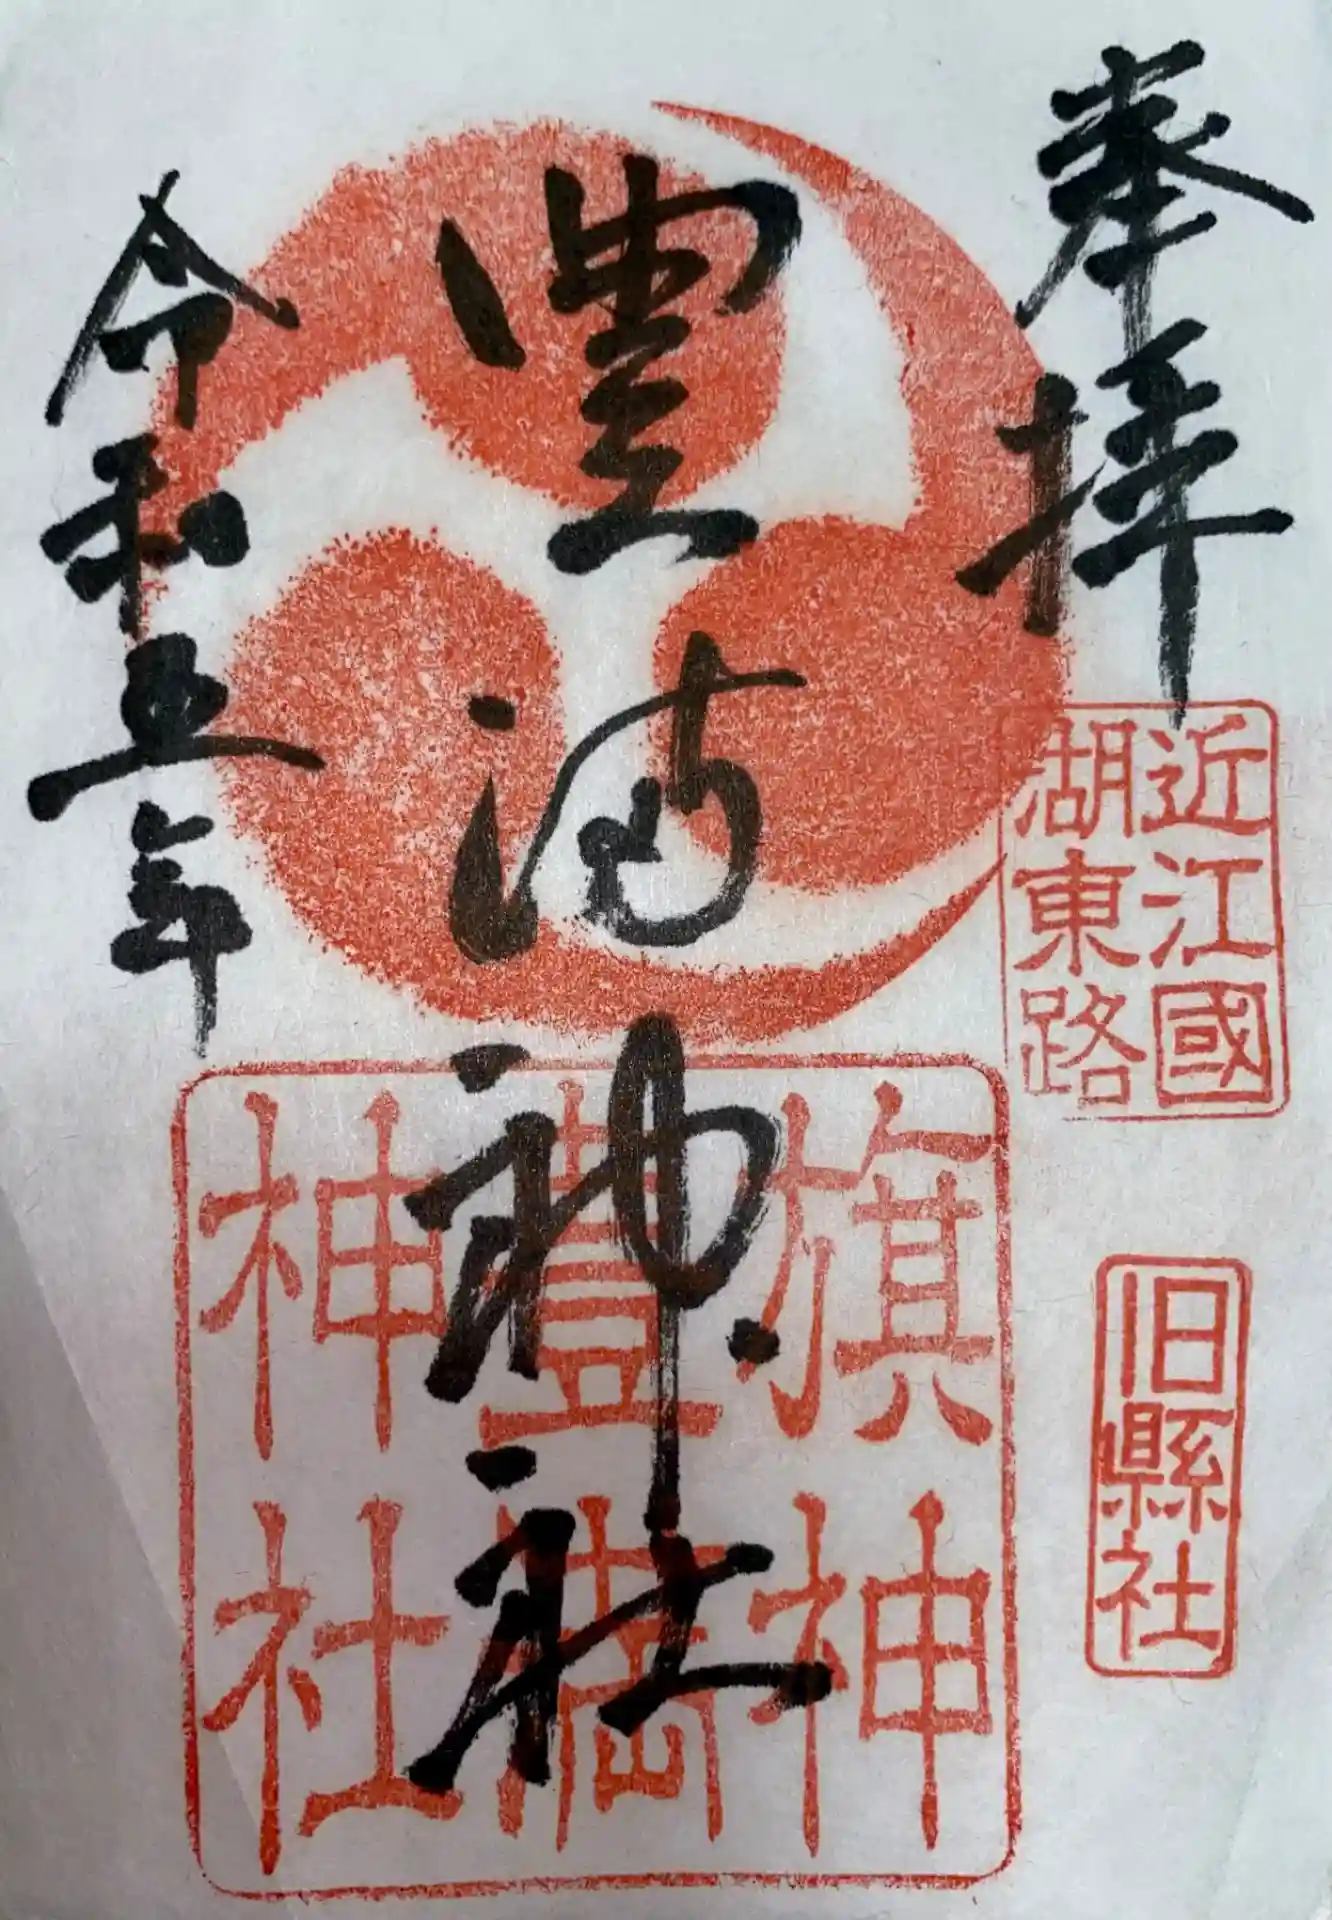 奉拝
近江國
湖東路
旧縣社
豊満神社
旗神
豊満
神社
令和五年